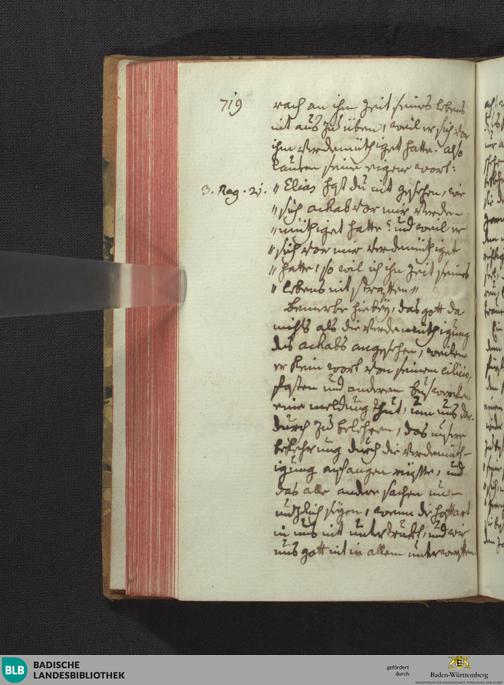 719
rach an ihm Zeit seines Lebens
nit aus zu üben, weil er sich vor
ihm verdemüthiget hatte. also
lauten seine eigene wort:
3. Reg. 21. „ Elias hast du nit gesehen, wie
„ sich achab vor mir verde-
„ müthiget hatte? und weil er
„ sich vor mir verdemüthiget
„ hatte, so wil ich ihn Zeit seines
„ Lebens nit straffen „
bemerke hiebey, das gott da
nichts als die verdemüthigung
des achabs angesehen, weilen
er kein wort von seinem cilicio,
fasten und anderen bußwerken
eine meldung thut, um uns da-
durch zu belehren, das unsere
bekehrung durch die verdemüth-
igung anfangen müsse, und
das alle andere sachen un-
nuzlich seyen, wenn die hoffart
in uns nit untertruckt, und wir
uns gott nit in allem unterwerffen
BLB BADISCHE
LANDESBIBLIOTHEK
gefördert
durch
Baden-Württemberg